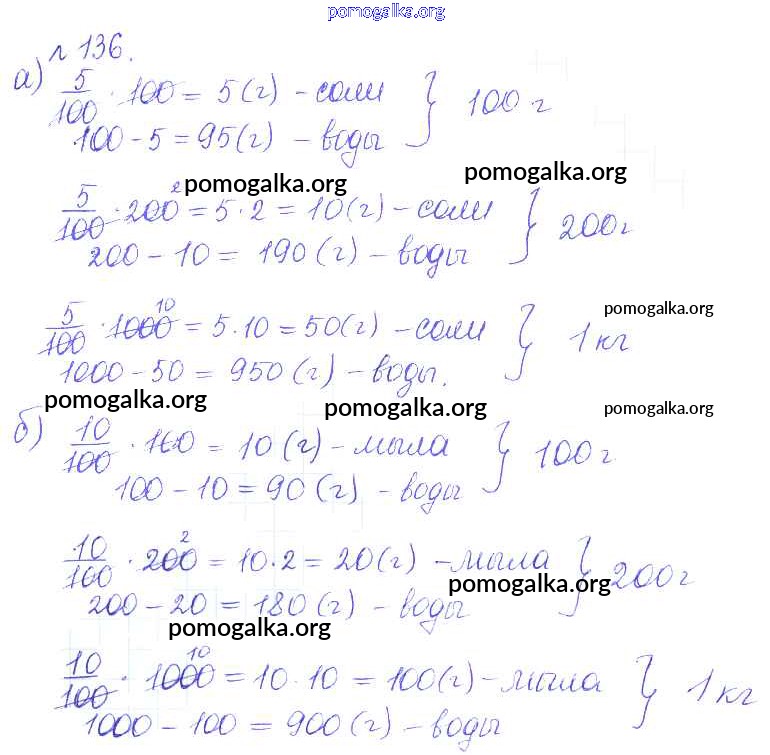 pomogalka.org
№ 136.
а) 5/100 · 100 = 5 (г) – соли } 100 г
100 – 5 = 95 (г) – воды
pomogalka.org pomogalka.org
5/100 · 200 2 = 5 · 2 = 10 (г) – соли } 200 г
200 – 10 = 190 (г) – воды
pomogalka.org
5/100 · 1000 10 = 5 · 10 = 50 (г) – соли } 1 кг
1000 – 50 = 950 (г) – воды.
pomogalka.org pomogalka.org pomogalka.org
б) 10/100 · 100 = 10 (г) – мыла } 100 г
100 – 10 = 90 (г) – воды
10/100 · 200 2 = 10 · 2 = 20 (г) – мыла } 200 г
pomogalka.org
200 – 20 = 180 (г) – воды
pomogalka.org
10/100 · 1000 10 = 10 · 10 = 100 (г) – мыла } 1 кг
1000 – 100 = 900 (г) – воды